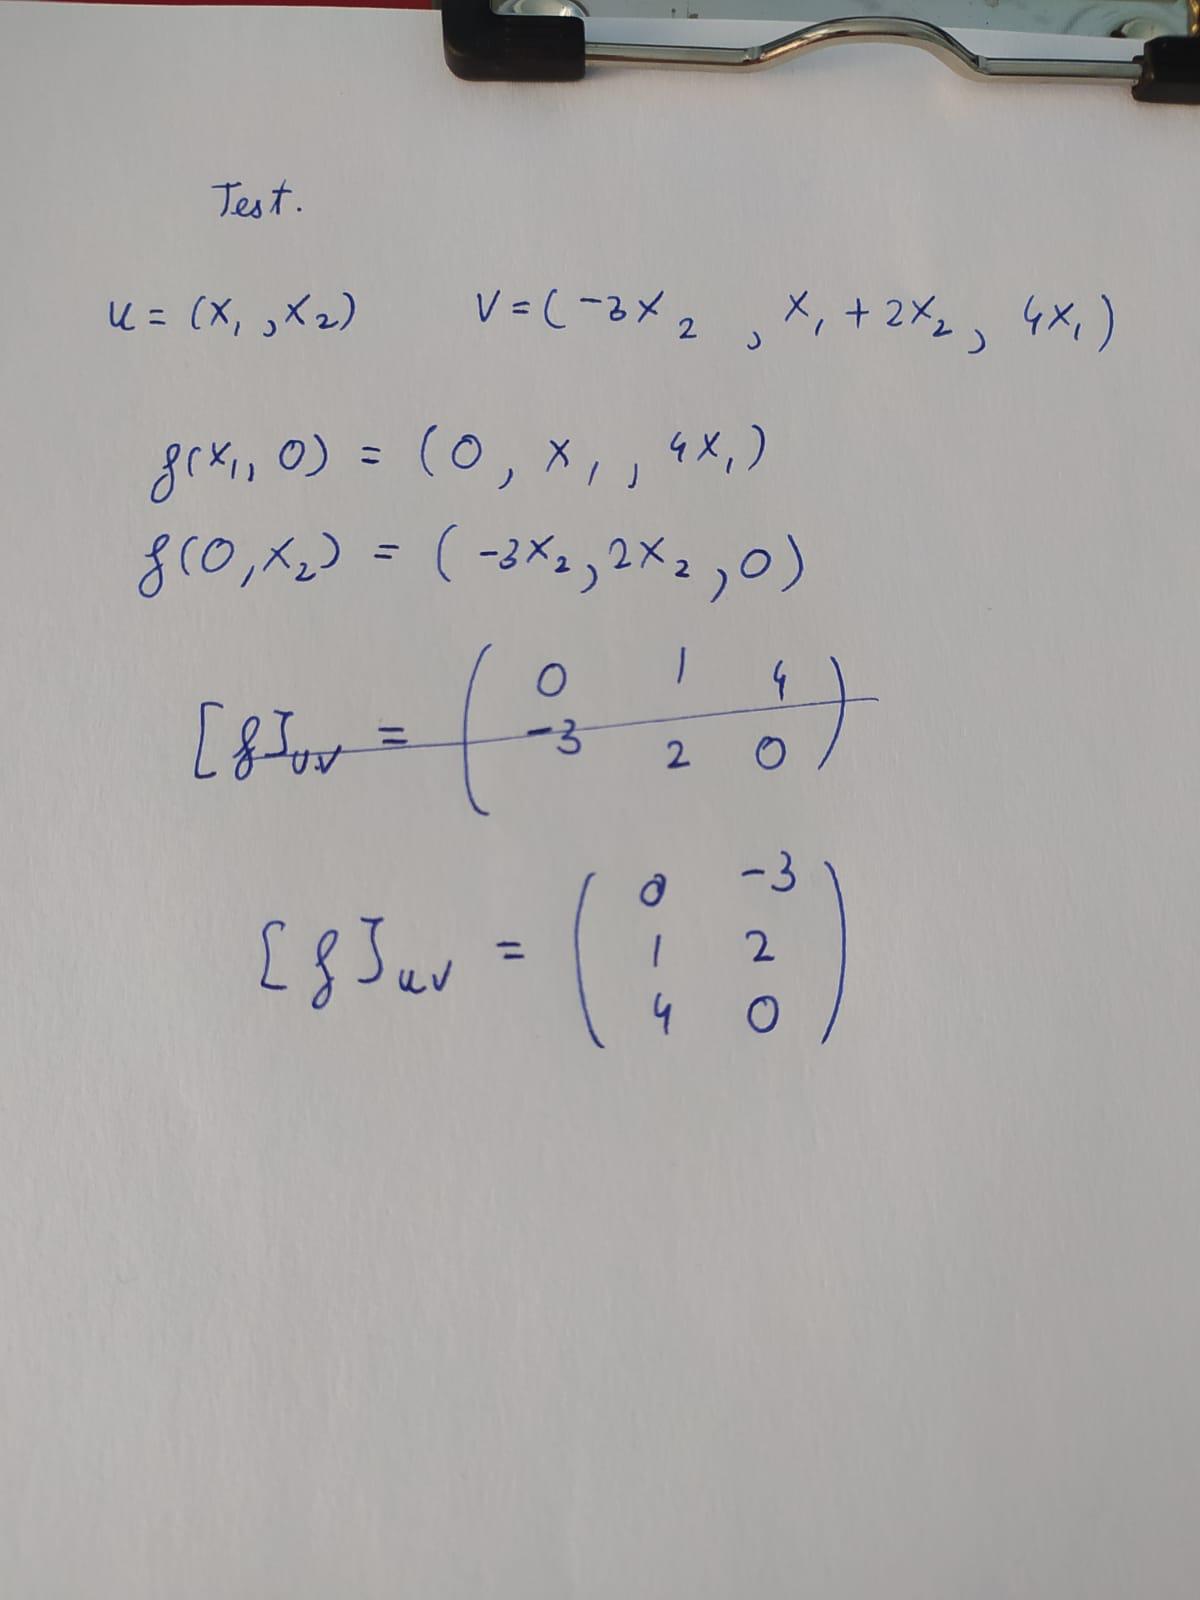 Test.
u = (x₁, x₂) v = (-3x₂, x₁ + 2x₂, 4x₁)
f(x₁, 0) = (0, x₁, 4x₁)
f(0, x₂) = (-3x₂, 2x₂, 0)
[f]uv = ( 0 1 4
-3 2 0 )
[f]uv = ( 0 -3
1 2
4 0 )